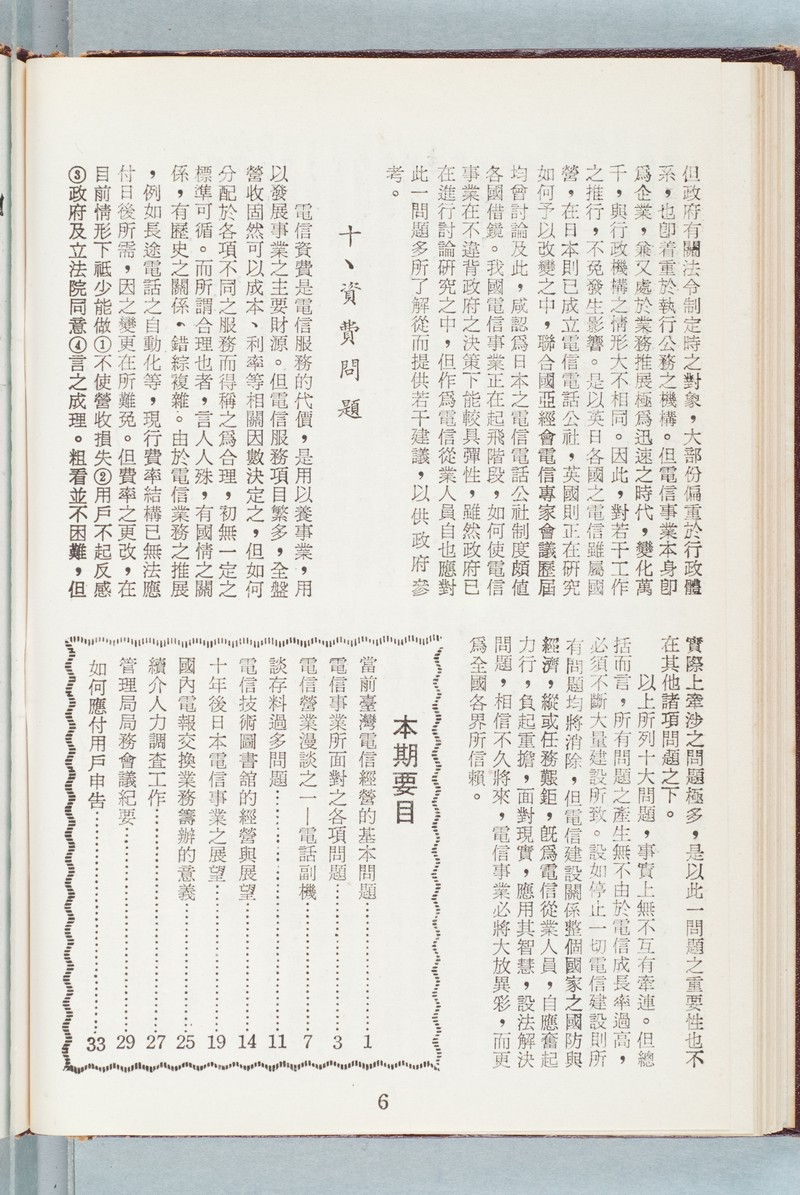 但政府有關法令制定時之對象，大部份偏重於行政體
系，也卽着重於執行公務之機構。但電信事業本身卽
爲企業，兼又處於業務推展極爲迅速之時代，變化萬
千，與行政機構之情形大不相同。因此，對若干工作
之推行，不免發生影響。是以英日各國之電信雖屬國
營，在日本則已成立電信電話公社，英國則正在研究
如何予以改變之中，聯合國亞經會電信專家會議歷屆
均曾討論及此，咸認爲日本之電信電話公社制度頗値
各國借鏡。我國電信事業正在起飛階段，如何使電信
事業在不違背政府之決策下能較具彈性，雖然政府已
在進行討論研究之中，但作爲電信從業人員自也應對
此一問題多所了解從而提供若干建議，以供政府參
考。
十、資費問題
電信資費是電信服務的代價，是用以養事業，用
以發展事業之主要財源。但電信服務項目繁多，全盤
營收固然可以成本、利率等相關因數決定之，但如何
分配於各項不同之服務而得稱之爲合理，初無一定之
標準可循。而所謂合理也者，言人人殊，有國情之關
係，有歷史之關係、錯綜複雜。由於電信業務之推展
，例如長途電話之自動化等，現行費率結構已無法應
付日後所需，因之變更在所難免。但費率之更改，在
目前情形下祗少能做①不使營收損失②用戶不起反感
③政府及立法院同意④言之成理。粗看並不困難，但
實際上牽涉之問題極多，是以此一問題之重要性也不
在其他諸項問題之下。
以上所列十大問題，事實上無不互有牽連。但總
括而言，所有問題之產生無不由於電信成長率過高，
必須不斷大量建設所致。設如停止一切電信建設則所
有問題均將消除，但電信建設關係整個國家之國防與
經濟，縱或任務艱鉅，旣爲電信從業人員，自應奮起
力行，負起重擔，面對現實，應用其智慧，設法解決
問題，相信不久將來，電信事業必將大放異彩，而更
爲全國各界所信賴。
本期要目
當前臺灣電信經營的基本問題……………1
電信事業所面對之各項問題……………3
電信營業漫談之一—電話副機……………7
談存料過多問題……………11
電信技術圖書舘的經營與展望……………14
十年後日本電信事業之展望……………19
國內電報交換業務籌辦的意義……………25
續介人力調查工作……………27
管理局局務會議紀要……………29
如何應付用戶申告……………33
6